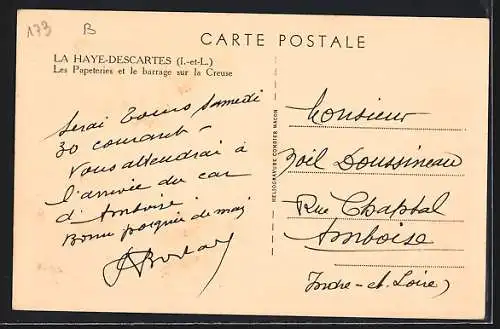 173
B
CARTE POSTALE
LA HAYE-DESCARTES (I.-et-L.)
Les Papeteries et le barrage sur la Creuse
Serai Tours Samedi
30 courant -
Vous attendrai à
l'arrivée du car
d'Amboise.
Bonne poignée de main
HELIOGRAVURE COMBIER MACON
Monsieur
Noil Doussineau
Rue Chaptal
Amboise
Indre-et-Loire)